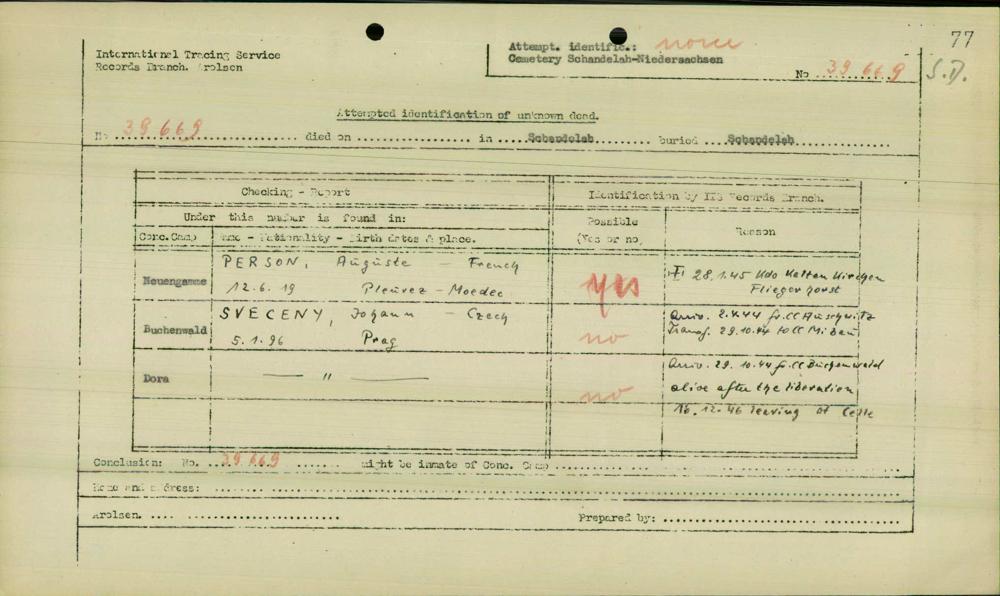 International Tracing Service
Records Branch. Arolsen
Attempt. identific.: none
Cemetery Schandelah-Niedersachsen
No ..........39 669
77
S.D.
Attempted identification of unknown dead.
No 39 669 ........ died on ........ in ....Schandelah........ buried ...Schandelah........
Checking - Report
Identification by ITS Records Branch.
Under this number is found in:
Possible
(Yes or no,
Reason
Conc.Camp
Name - Nationality - Birth dates & place.
Neuengamme
PERSON, Auguste - French
12.6.19 Pleuvez-Moedec
yes
28.1.45 Kdo Kalten Kirchen
Fliegerhorst
Buchenwald
SVECENY, Johann - Czech
5.1.96 Prag
no
Arriv. 2.X.44 fr.CC Auschwitz
Transf. 29.10.44 to CC Mi Bau
Dora
— " —
no
Arriv. 29.10.44 fr.CC Buchenwald
alive after the liberation
16.12.46 leaving at Celle
Conclusion: No. ..39 669...... might be inmate of Conc. Camp ........
Name and address: ........
Arolsen. ........
Prepared by: ........